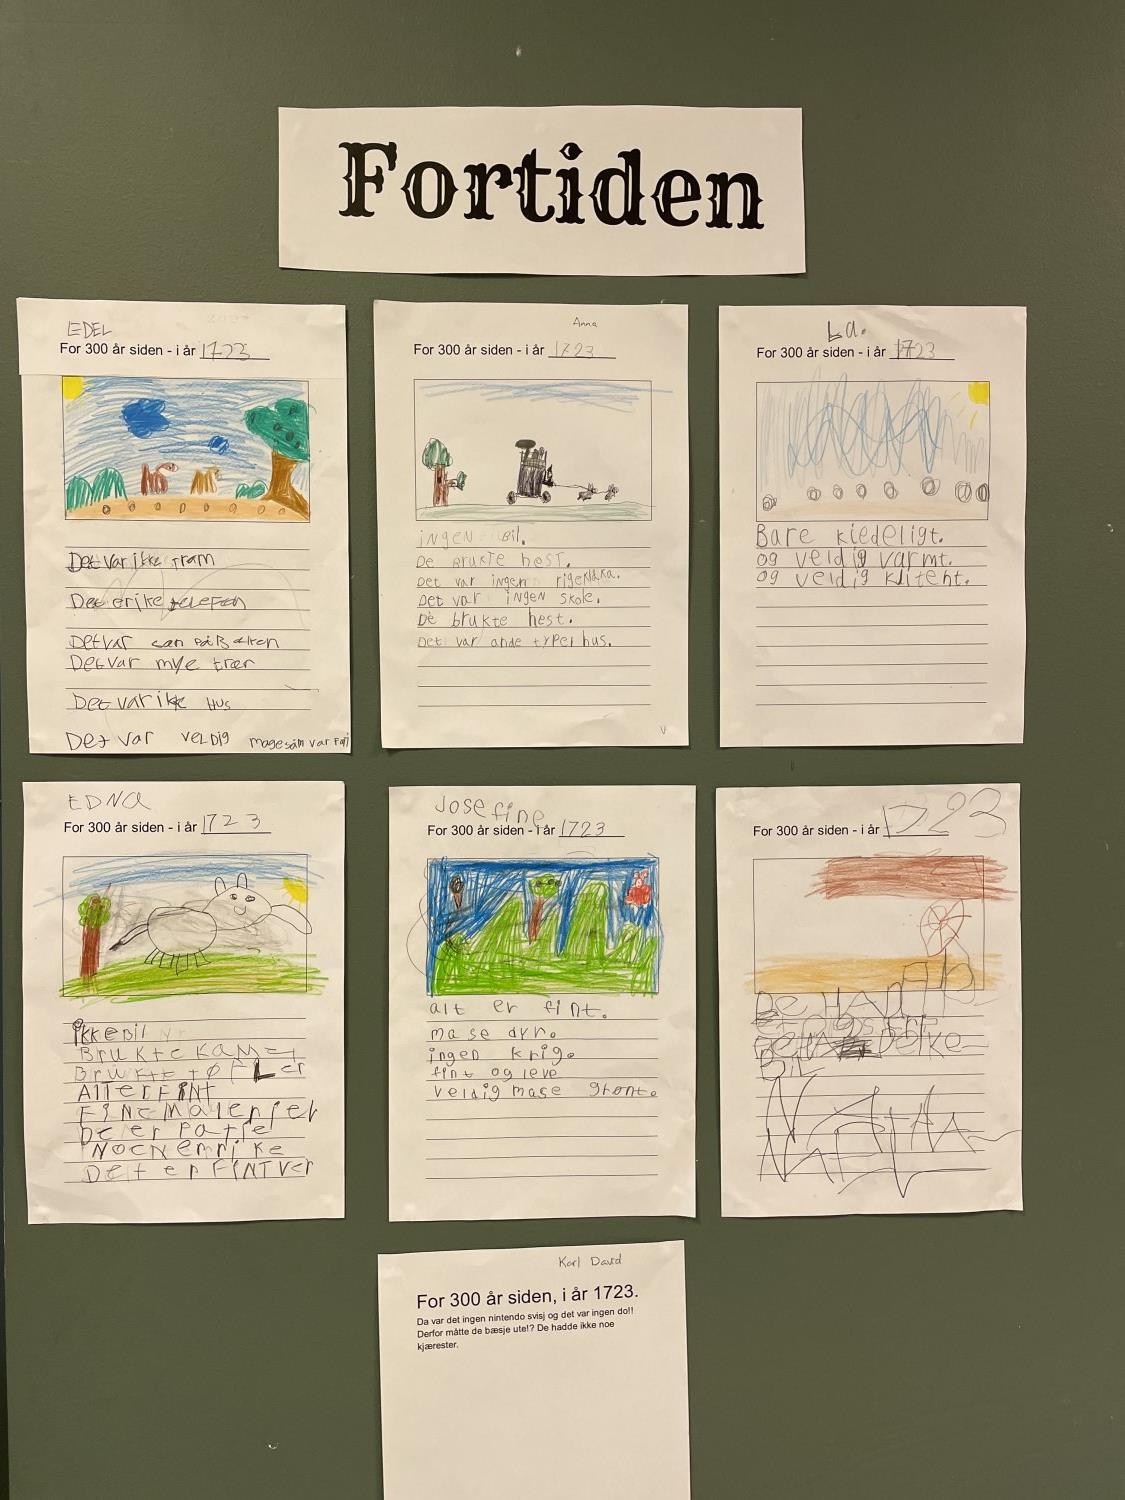 Fortiden
EDEL
For 300 år siden - i år 1723
Det var ikke tram
Det erike telefon
Detvar san på Bakken
Detvar mye trær
Det var ikk Hus
Det var veldig magesøm var
Anna
For 300 år siden - i år 1723
ingen Bil.
De Brukte hest.
Det var ingen
Det var ingen skole.
De brukte hest.
Det var ande typer hus.
La.
For 300 år siden - i år 1723
Bare kiedeligt.
og veldig varmt.
og veldig klitent.
EDNA
For 300 år siden - i år 1723
ikkeBil
Brukte
Brukte tøfLer
Alterfint
Fine malerier
De er
Det er FINT ver
Josefine
For 300 år siden - i år 1723
alt er fint.
mase dyr.
ingen krig.
fint og leve
veldig mase grønt.
For 300 år siden - i år 1723
De HAd
BiL
Karl David
For 300 år siden, i år 1723.
Da var det ingen nintendo svisj og det var ingen do!!
Derfor måtte de bæsje ute!? De hadde ikke noe
kjærester.